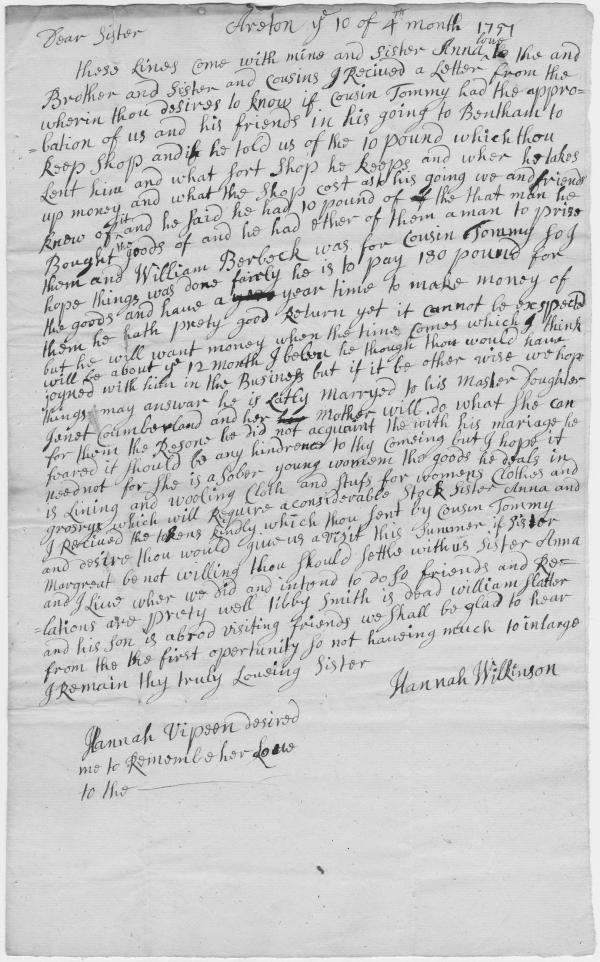 Dear Sister Areton ye 10 of 4th month 1751
these Lines come with mine and Sister Anna love to the and
Brother and Sister and Cousins I Recived a Letter from the
wherin thou desires to know if Cousin Tommy had the appro-
=bation of us and his friends in his going to Bentham to
keep Shop and if he told us of the 10 pound which thou
Lent him and what sort Shop he keeps and wher he takes
up money and what the Shop cost ask his going we and friends
knew of it and he said he had 10 pound of the that man he
Bought the goods of and he had ether of them a man to prise
them and William Berbeck was for Cousin Tommy so I
hope things was done fairly he is to pay 180 pound for
the goods and have a year time to make money of
them he hath prety good Return yet it cannot be exspected
but he will want money when the time comes which I think
will be about ye 12 month I beleve he though thou would have
joyned with him in the Business but if it be other wise we hope
things may answar he is Latly Marryed to his Master Doughter
Janet Coumberland and her Mother will do what She can
for them the Resone he did not acquaint the with his mariage he
feared it should be any hindrence to thy Comeing but I hope it
need not for She is a Sober young womem the goods he deals in
is Lining and wooling Cloth and Stufs for womens Clothes and
grosrys which will Require a considerable Stock Sister Anna and
I Recived the tokens kindly which thou sent by Cousin Tommy
and desire thou would give us a visit this Summer if Sister
Margreat be not willing thou Should settle with us Sister Anna
and I Live wher we did and intend to do so friends and Re-
=lations are prety well tibby Smith is dead william Slatter
and his Son is abrod visiting friends we shall be glad to hear
from the the first opertunity so not haveing much to inlarge
I Remain thy truly Loveing Sister
Hannah Wilkinson
Hannah Vipeen desired
me to Remembe her Love
to the